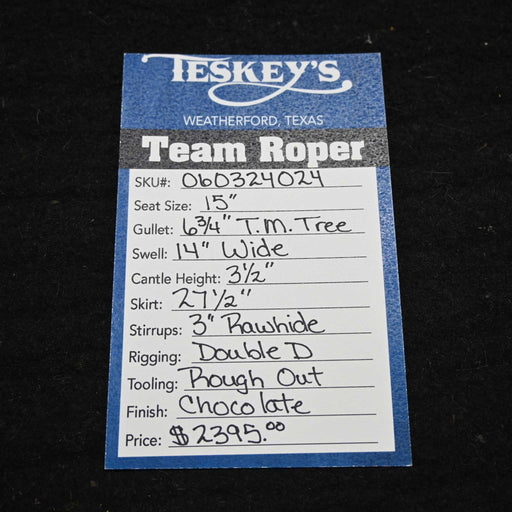 TESKEY'S
WEATHERFORD, TEXAS
Team Roper
SKU#: 060324024
Seat Size: 15"
Gullet: 6 3/4" T.M. Tree
Swell: 14" Wide
Cantle Height: 3 1/2"
Skirt: 27 1/2"
Stirrups: 3" Rawhide
Rigging: Double D
Tooling: Rough Out
Finish: Chocolate
Price: $2395.00